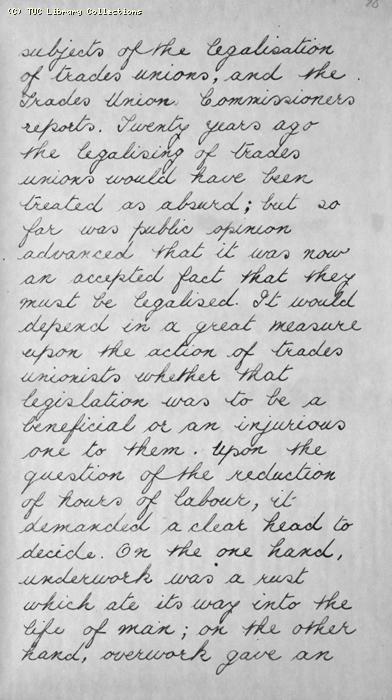 (C) TUC Library Collections
subjects of the legalisation
of trades unions, and the
Trades Union Commissioners
reports. Twenty years ago
the legalising of trades
unions would have been
treated as absurd; but so
far was public opinion
advanced that it was now
an accepted fact that they
must be legalised. It would
depend in a great measure
upon the action of trades
unionists whether that
legislation was to be a
beneficial or an injurious
one to them. Upon the
question of the reduction
of hours of labour, it
demanded a clear head to
decide. On the one hand,
underwork was a rust
which ate its way into the
life of man; on the other
hand, overwork gave an